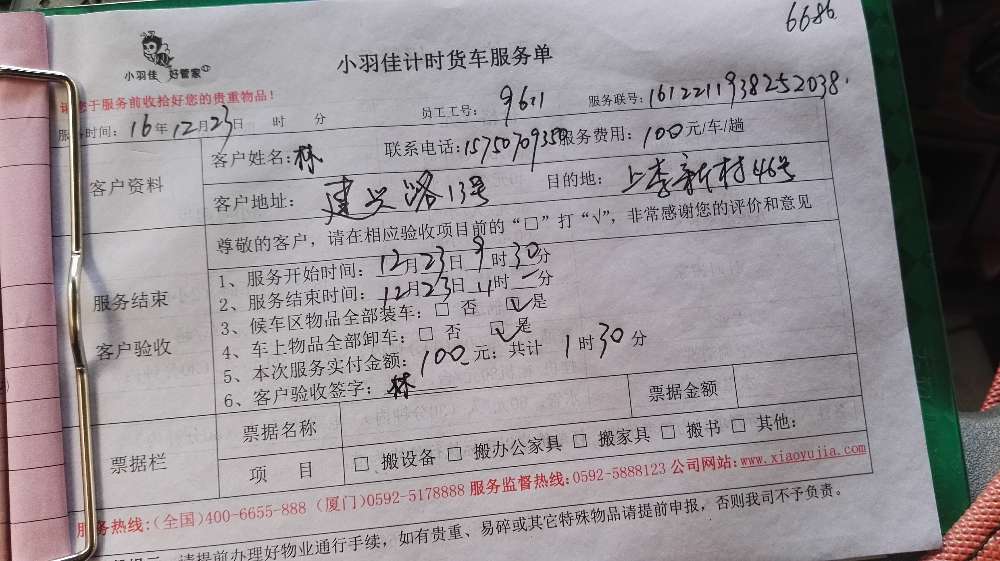 6686
小羽佳 好管家
小羽佳计时货车服务单
请您于服务前收拾好您的贵重物品!
服务时间: 16年12月23日 时 分 员工工号: 9611 服务联号: 161221193825 2038.
客户资料
客户姓名: 林 联系电话: 15750709350 服务费用: 100元/车/趟
客户地址: 建兴路13号 目的地: 上李新村46号
服务结束
客户验收
尊敬的客户，请在相应验收项目前的“□”打“√”，非常感谢您的评价和意见
1、服务开始时间: 12月23日9时30分
2、服务结束时间: 12月23日11时 一分
3、候车区物品全部装车: □ 否 ☑是
4、车上物品全部卸车: □ 否 ☑是
5、本次服务实付金额: 100元; 共计 1时30分
6、客户验收签字: 林
票据栏
票据名称 票据金额
项 目 □ 搬设备 □ 搬办公家具 □ 搬家具 □ 搬书 □ 其他:
服务热线:(全国)400-6655-888 (厦门)0592-5178888 服务监督热线:0592-5888123 公司网站:www.xiaoyujia.com
请提前办理好物业通行手续，如有贵重、易碎或其它特殊物品请提前申报，否则我司不予负责。